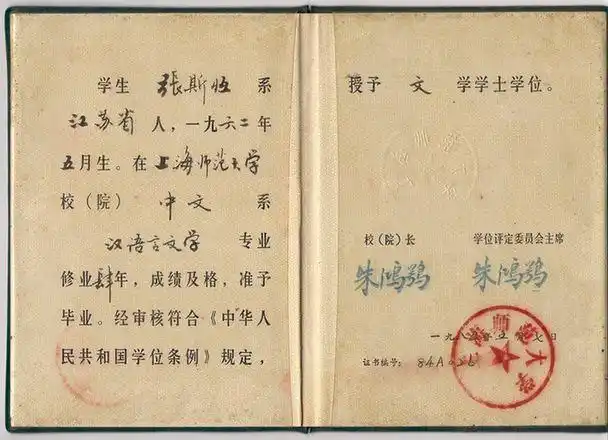 学生 張斯恆 系
江苏省 人，一九六二年
五月生。在上海师范大学
校（院） 中文 系
汉语言文学 专业
修业肆年，成绩及格，准予
毕业。经审核符合《中华人
民共和国学位条例》规定，
授予 文 学学士学位。
校（院）长 学位评定委员会主席
朱鸿鹗 朱鸿鹗
一九八 日
证书编号： 84A
师范大